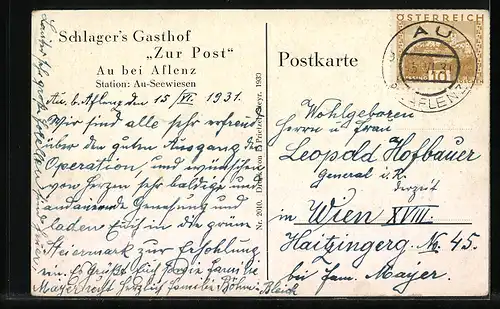 Schlager's Gasthof
„Zur Post"
Au bei Aflenz
Station: Au-Seewiesen
Au, b. Aflenz den 15/VI. 1931.
Wir sind alle sehr erfreut
über den guten Ausgang der
Operation, und wünschen
von Herzen sehr baldige und
andauernde Genesung und
laden Euch in die grüne
Steiermark zur Erholung
ein. Es grüßt Euch sowie Familie
Mayer recht herzlich Familie Böhm-Bleich
Nr. 2010. Druck vom
Steyr. 1933
Postkarte
ÖSTERREICH
10
AU
AFLENZ
Wohlgeboren
Herrn u. Frau
Leopold Hofbauer
General i. R.
derzeit
in Wien XVIII.
Haitzingerg. No. 45.
bei Fam. Mayer.